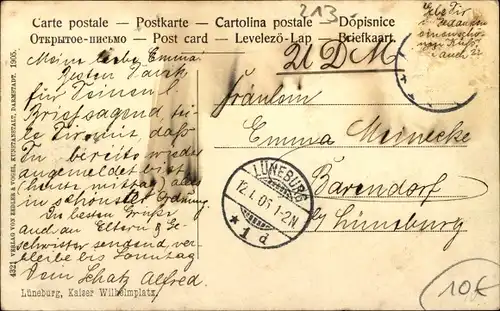 Carte postale — Postkarte — Cartolina postale — Dópisnice
Открытое-письмо — Post card — Levelező-Lap — Briefkaart.
213.
Meine liebe Emma
Besten Dank
für Deinen l.
Brief sagend, teile
Dir mit, daß
Du bereits wieder
angemeldet bist
(heute mittag) alles
in schönster Ordnung.
Die besten Grüße
auch an Eltern & Geschwister
sendend, verbleibe
bis Sonntag
Dein Schatz Alfred.
Fräulein
Emma Meinecke
Barendorf
b/ Lüneburg
LÜNEBURG
12.1.06 1-2N
* 1 d
10€
4321 VERLAG VON ZEDLER & VOGEL, KUNSTANSTALT, DARMSTADT. 1905.
Lüneburg, Kaiser Wilhelmplatz.